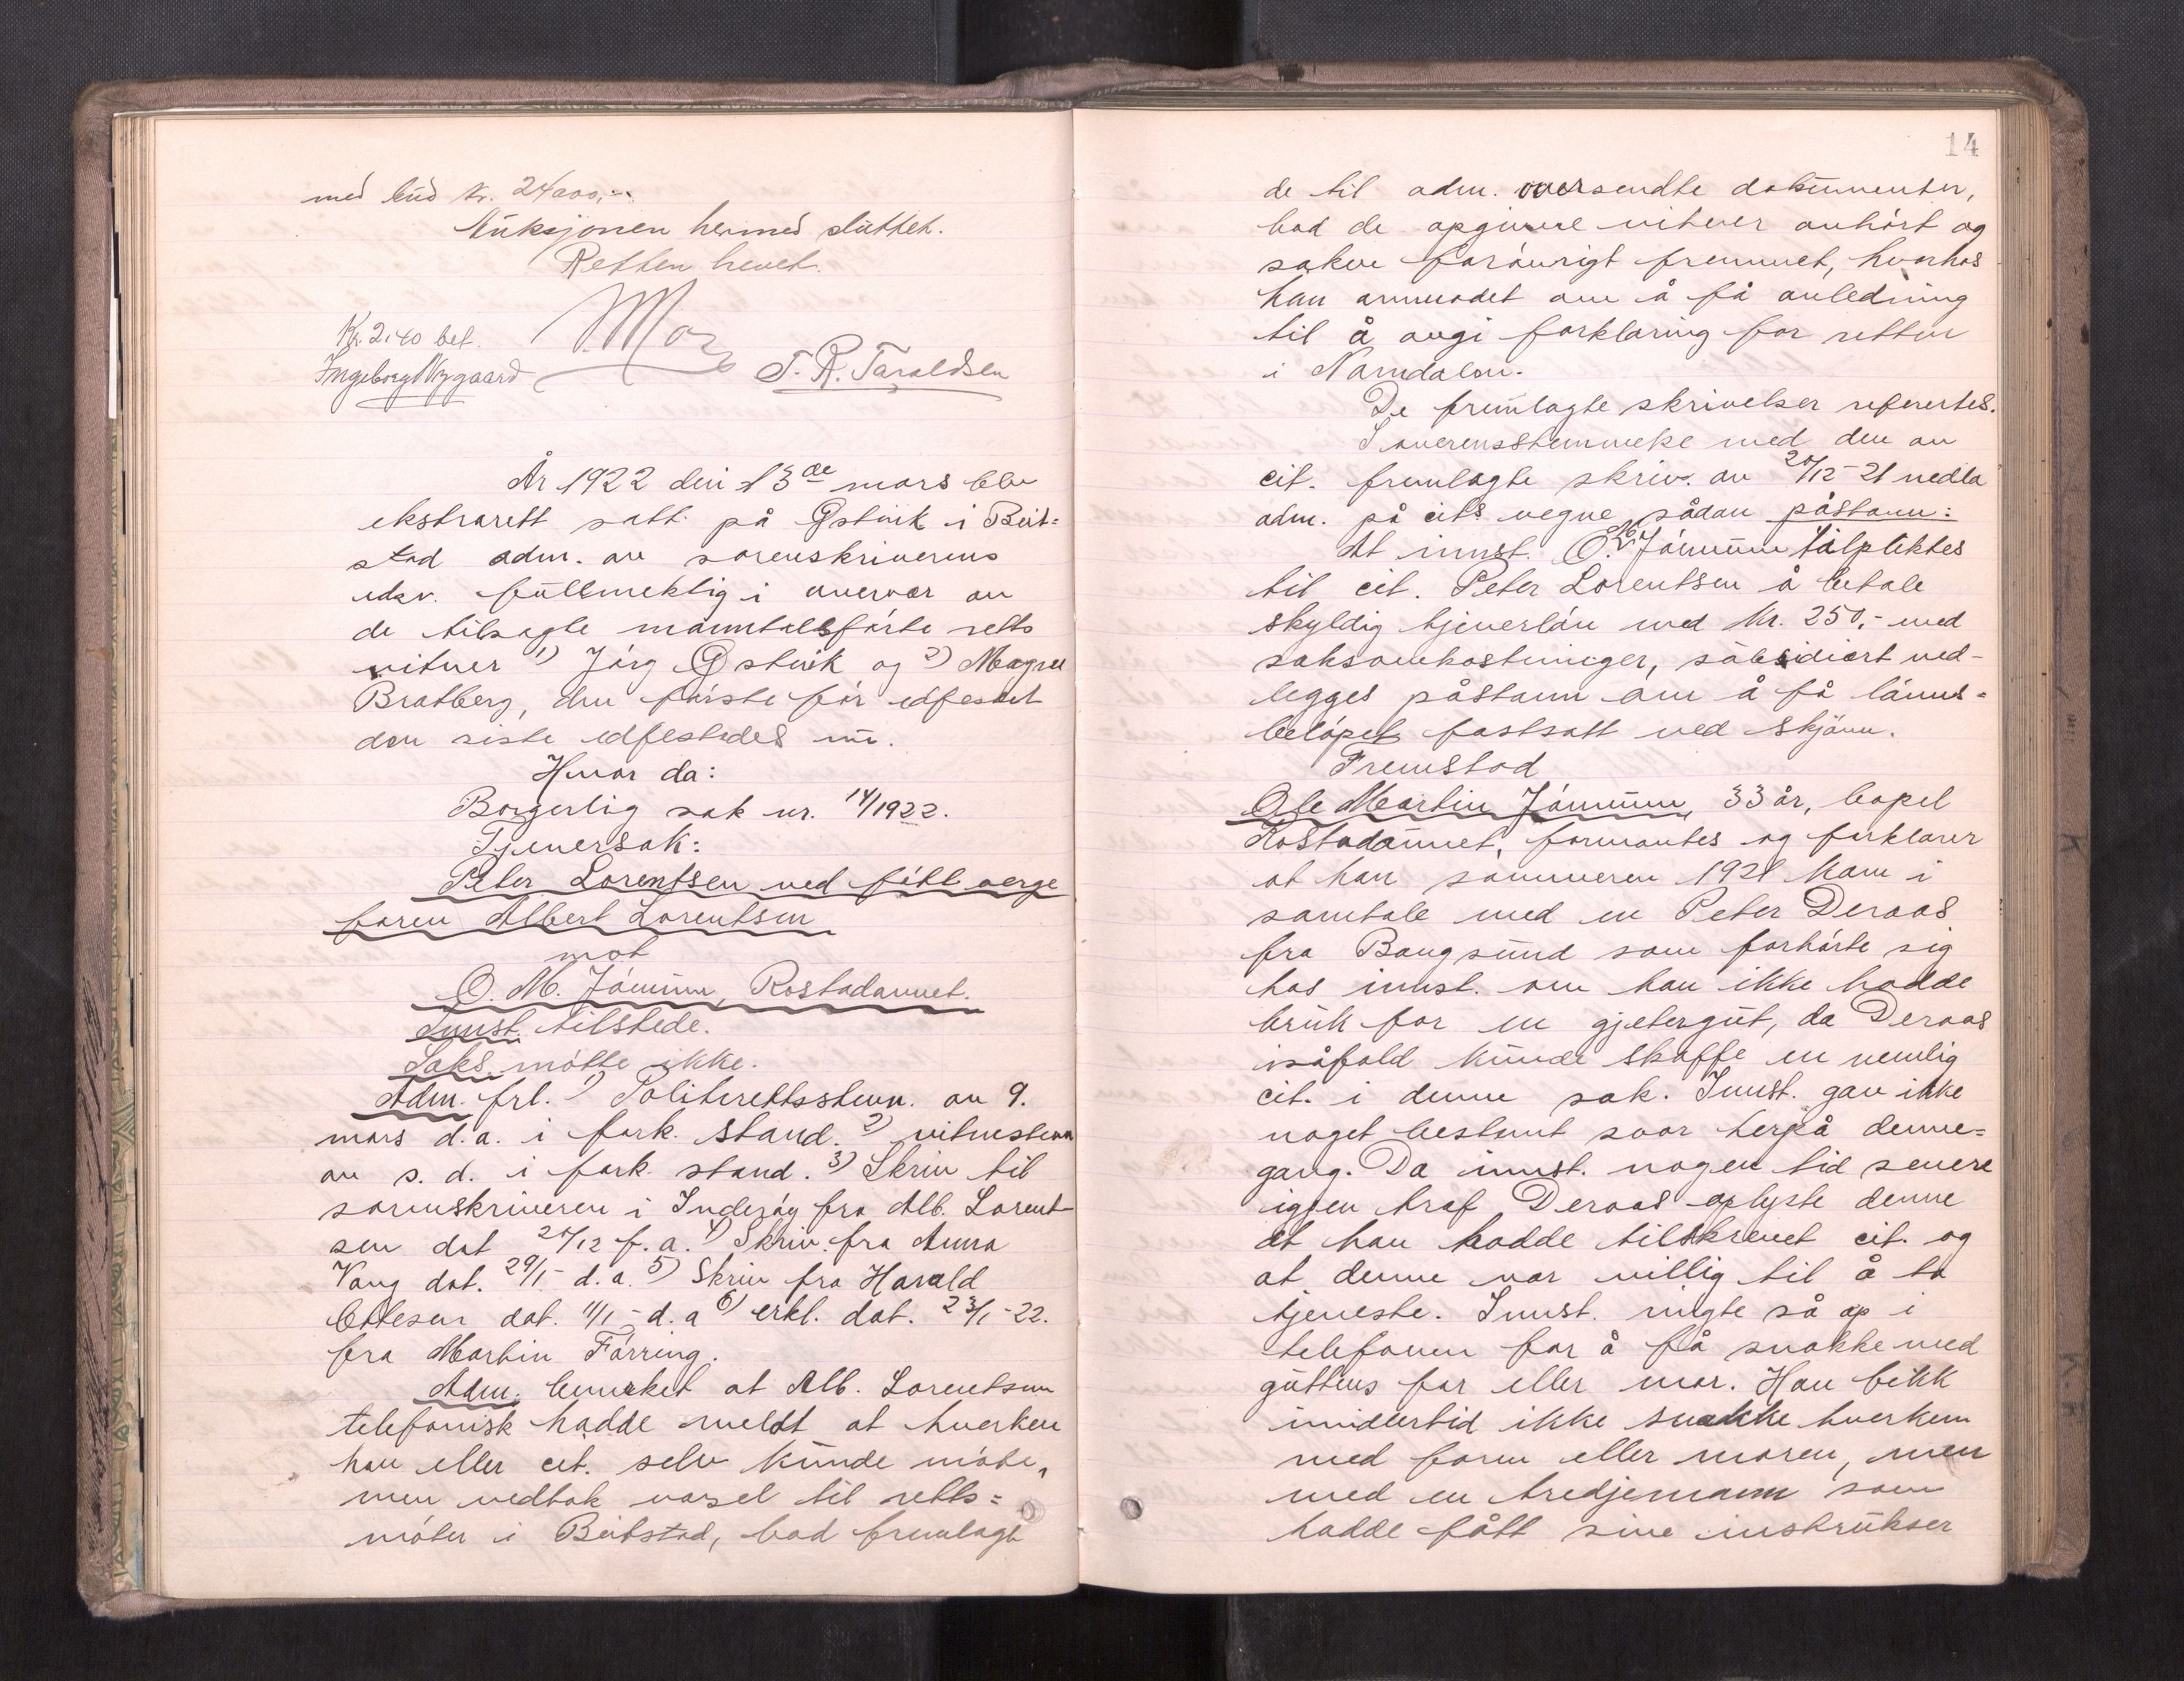 med bud kr. 24000,-.
Auksjonen hermed sluttet.
Retten hevet.
Kr. 2.40 bet.
Ingeborg Nygaard
T. R. Taraldsen
År 1922 den 13de mars blev
ekstrarett satt på Østvik i Beit=
stad adm. av sorenskriverens
edsv. fullmektig i overvær av
de tilsagte manntallsførte retts
vitner 1) Jørg. Østvik og 2) Magne
Bratberg, den første før edfestet
den siste edfestedes nu.
Hvor da:
Borgerlig sak nr. 14/1922.
Tjenersak:
Peter Lorentsen ved født verge
faren Albert Lorentsen
mot
O. M. Jømme, Rostadannet.
Innst. tilstede.
Saks. møtte ikke.
Adm. frl. 1) Politirettsstevn. av 9.
mars d.a. i fork. stand. 2) vitnestevn
av s. d. i fork. stand. 3) Skriv til
sorenskriveren i Inderøy fra Alb. Lorent-
sen dat 20/12 f.a. 4) Skriv. fra Anna
Vang dat. 29/1 - d.a. 5) Skriv fra Harald
dat. 11/1 - d.a 6) erkl. dat. 23/1-22.
fra Martin Førring.
Adm. bemerket at Alb. Lorentsen
telefonisk hadde meldt at hverken
han eller cit. selv kunde møte,
men vedtok varsel til retts=
møter i Beitstad, bad fremlagt
14
de til adm. oversendte dokumenter,
bad de opgivne vitner avhørt og
saken forøvrigt fremmet, hvorhos
han anmodet om å få anledning
til å avgi forklaring for retten
i Namdalen.
De fremlagte skrivelser refertes.
I overensstemmelse med den av
cit. fremlagte skriv. av 20/12-21 nedla
adm. på cits vegne sådan påstann:
At innst. O. M. Jømme tilpliktes
til cit. Peter Lorentsen å betale
skyldig tjenerløn med kr. 250,- med
saksomkostninger, subsidiært ned-
legges påstann om å få lønns=
beløpet fastsatt ved skjønn.
Fremstod
Ole Martin Jømme, 33 år, bopel
Rostadannet, formantes og forklarer
at han sommeren 1921 kom i
samtale med en Peter Deraas
fra Bangsund som forhørte sig
hos innst. om han ikke hadde
bruk for en gjetergut, da Deraas
isåfald kunde skaffe en nemlig
cit. i denne sak. Innst. gav ikke
noget bestemt svar herpå denne=
gang. Da innst. nogen tid senere
igjen traf Deraas oplyste denne
at han hadde tilskrevet cit. og
at denne var villig til å ta
tjeneste. Innst. ringte så op i
telefonen for å få snakke med
guttens far eller mor. Han fikk
imidlertid ikke snakke hverken
med faren eller moren, men
med en tredjemann som
hadde fått sine instrukser